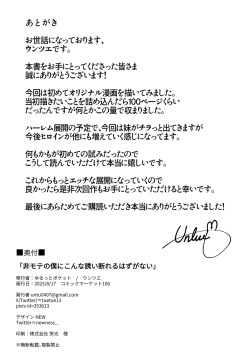 あとがき
お世話になっております、
ウンツエです。
本書をお手にとってくださった皆さま
誠にありがとうございます！
今回は初めてオリジナル漫画を描いてみました。
当初描きたいことを詰め込んだら100ページくらい
だったんですが何とかこの量で収まりました。
ハーレム展開の予定で、今回は妹がチラっと出てきますが
今後ヒロインが他にも増えていく感じになってます。
何もかもが初めての試みだったので
こうして読んでいただけて本当に嬉しいです。
これからもっとエッチな展開になっていくので
良かったら是非次回作もお手にとっていただけると幸いです。
最後にあらためてご購読いただき本当にありがとうございました！
Untue
■奥付■
「非モテの僕にこんな誘い断れるはずがない」
発行者：ゆるっとポケット / ウンツエ
発行日：2025/8/17 コミックマーケット106
発行者 untu0407@gmail.com
X(Twitter)＝tuetue13
pixiv id＝353613
デザイン NEW
Twitter＝newness_
印刷：株式会社 栄光 様
※無断転載、複製禁止